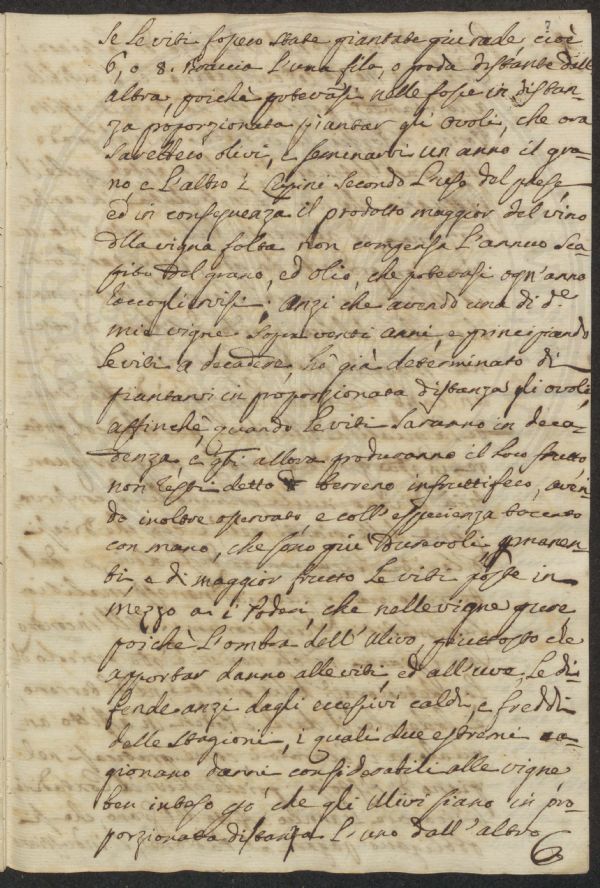 se le viti fossero state piantate più rade, cioè
6, o 8. Braccia l'una fila, o proda distante dall'
altra, poichè potevasi nelle fosse in distan-
za proporzionata piantar gli ovoli, che ora
sarebbero olivi, e seminarvi un anno il gra-
no, e l'altro i Lupini secondo l'uso del paese,
ed in conseguenza il prodotto maggior del vino
dlla vigna folta non compensa l'annuo
del grano, ed olio, che potevasi ogn'anno
raccoglirvisi. Anzi che avendo una di d.e
mie vigne sopra venti anni, e principiando
le viti a decadere, hò già determinato di
piantarvi in proporzionata distanza gli ovoli,
affinchè quando le viti saranno in deca-
denza, e qti allora produranno il loro frutto
non resti detto terreno infruttifero, aven-
do inoltre osservato, e coll'esperienza toccato
con mano, che sono più durevoli, permanen-
ti, e di maggior frutto le viti poste in
mezzo a i Poderi, che nelle vigne pure
poichè l'ombra dell'Ulivo piuttosto che
apportar danno alle viti, ed all'uva, le di-
fende anzi dagli eccessivi caldi, e freddi
delle stagioni, i quali due estremi ca-
gionano danni considerabili alle vigne
ben inteso però che gli Ulivi siano in pro-
porzionata distanza l'uno dall'altro
6